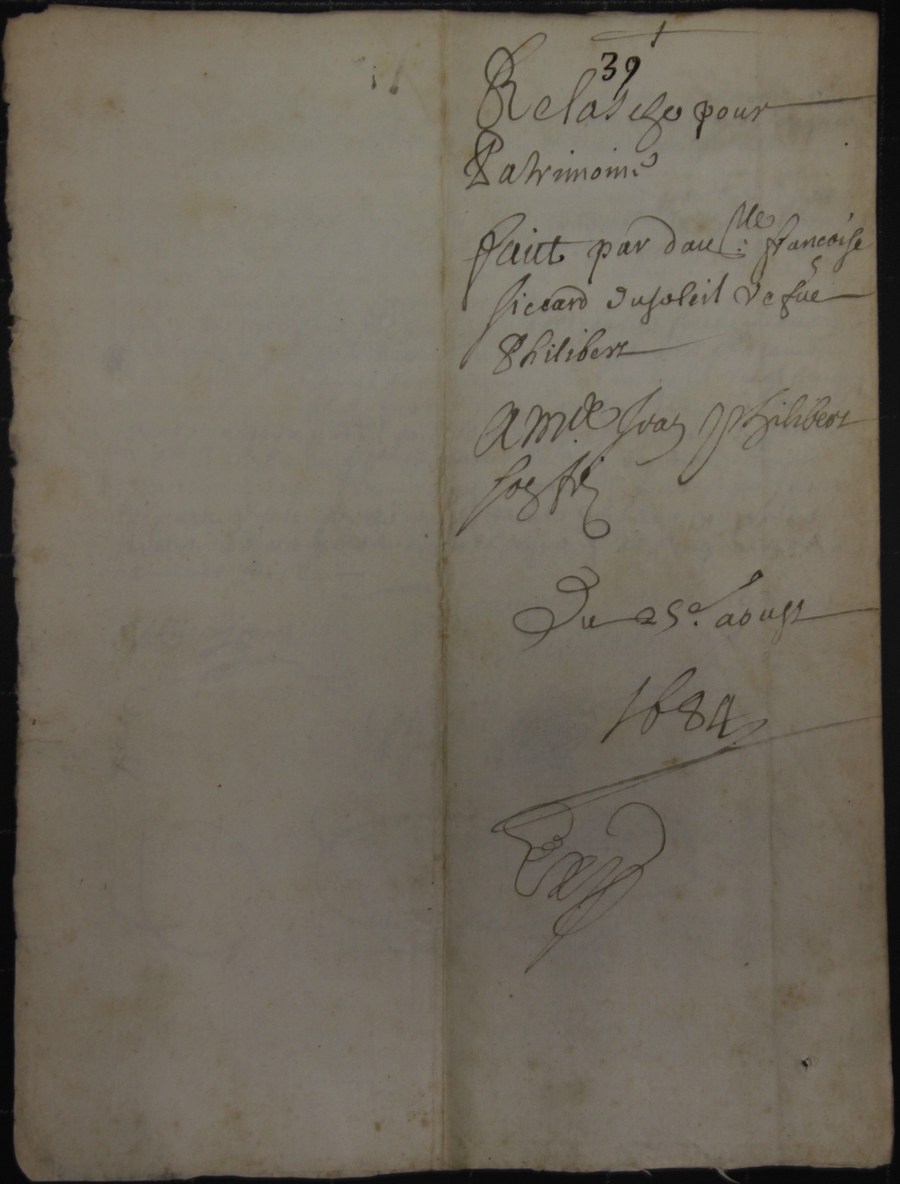 39
Relasche pour
Patrimoine
faict par dam.lle francoise
siccard du soleil vefue
Philibert
A m.re Philibert
son fil
Du 25.e aoust
1684